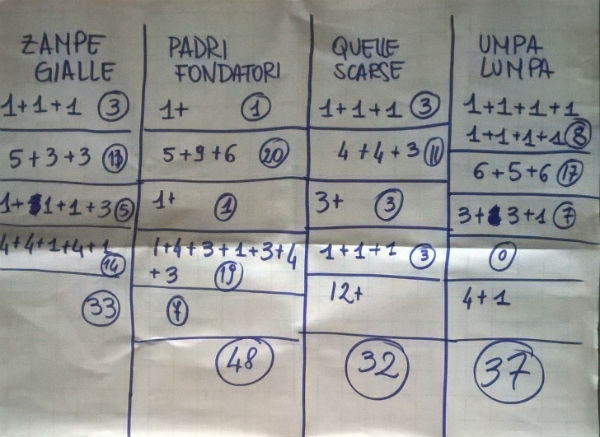 ZAMPE
GIALLE
1+1+1 3
5+3+3
1+1+1+3 5
4+4+1+4+1
14
33
PADRI
FONDATORI
1+ 1
5+9+6 20
1+ 1
1+4+3+1+3+4
+3 19
7
48
QUELLE
SCARSE
1+1+1 3
4+4+3 11
3+ 3
1+1+1 3
12+
32
UMPA
LUMPA
1+1+1+1
1+1+1+1 8
6+5+6 17
3+3+1 7
0
4+1
37